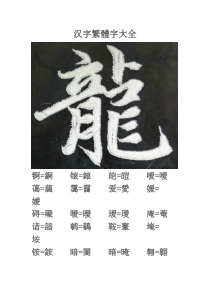 汉字繁體字大全
龍
锕=錒 锿=鎄 皑=皚 嗳=噯
蔼=藹 霭=靄 爱=愛 嫒=
嬡
碍=礙 暧=曖 瑷=璦 庵=菴
谙=諳 鹌=鵪 鞍=鞌 垵=
埯
铵=銨 暗=闇 暗=晻 翱=翺